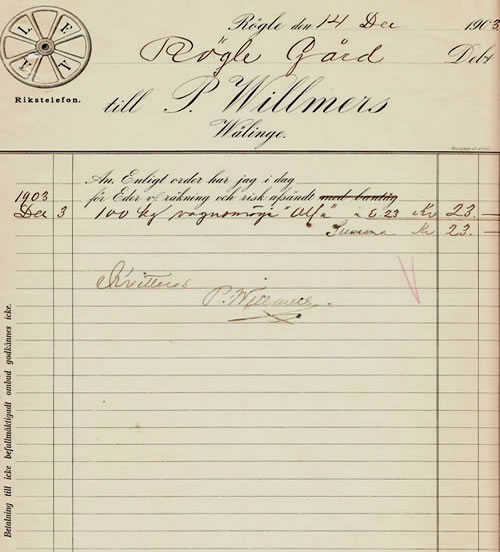 L E V
Rikstelefon.
Rögle den 14 Dec 1903
Rögle Gård Debet
till P. Willmers
Wålinge.
An. Enligt order har jag i dag
1903 för Eder v. räkning och risk afsändt med bantåg
Dec 3 100 kg vagnsmörj "Alfa" a 0.23 Kr 23.—
Summa Kr 23.—
Kvitteras
P. Willmers
Betalning till icke befullmäktigadt ombud godkännes icke.